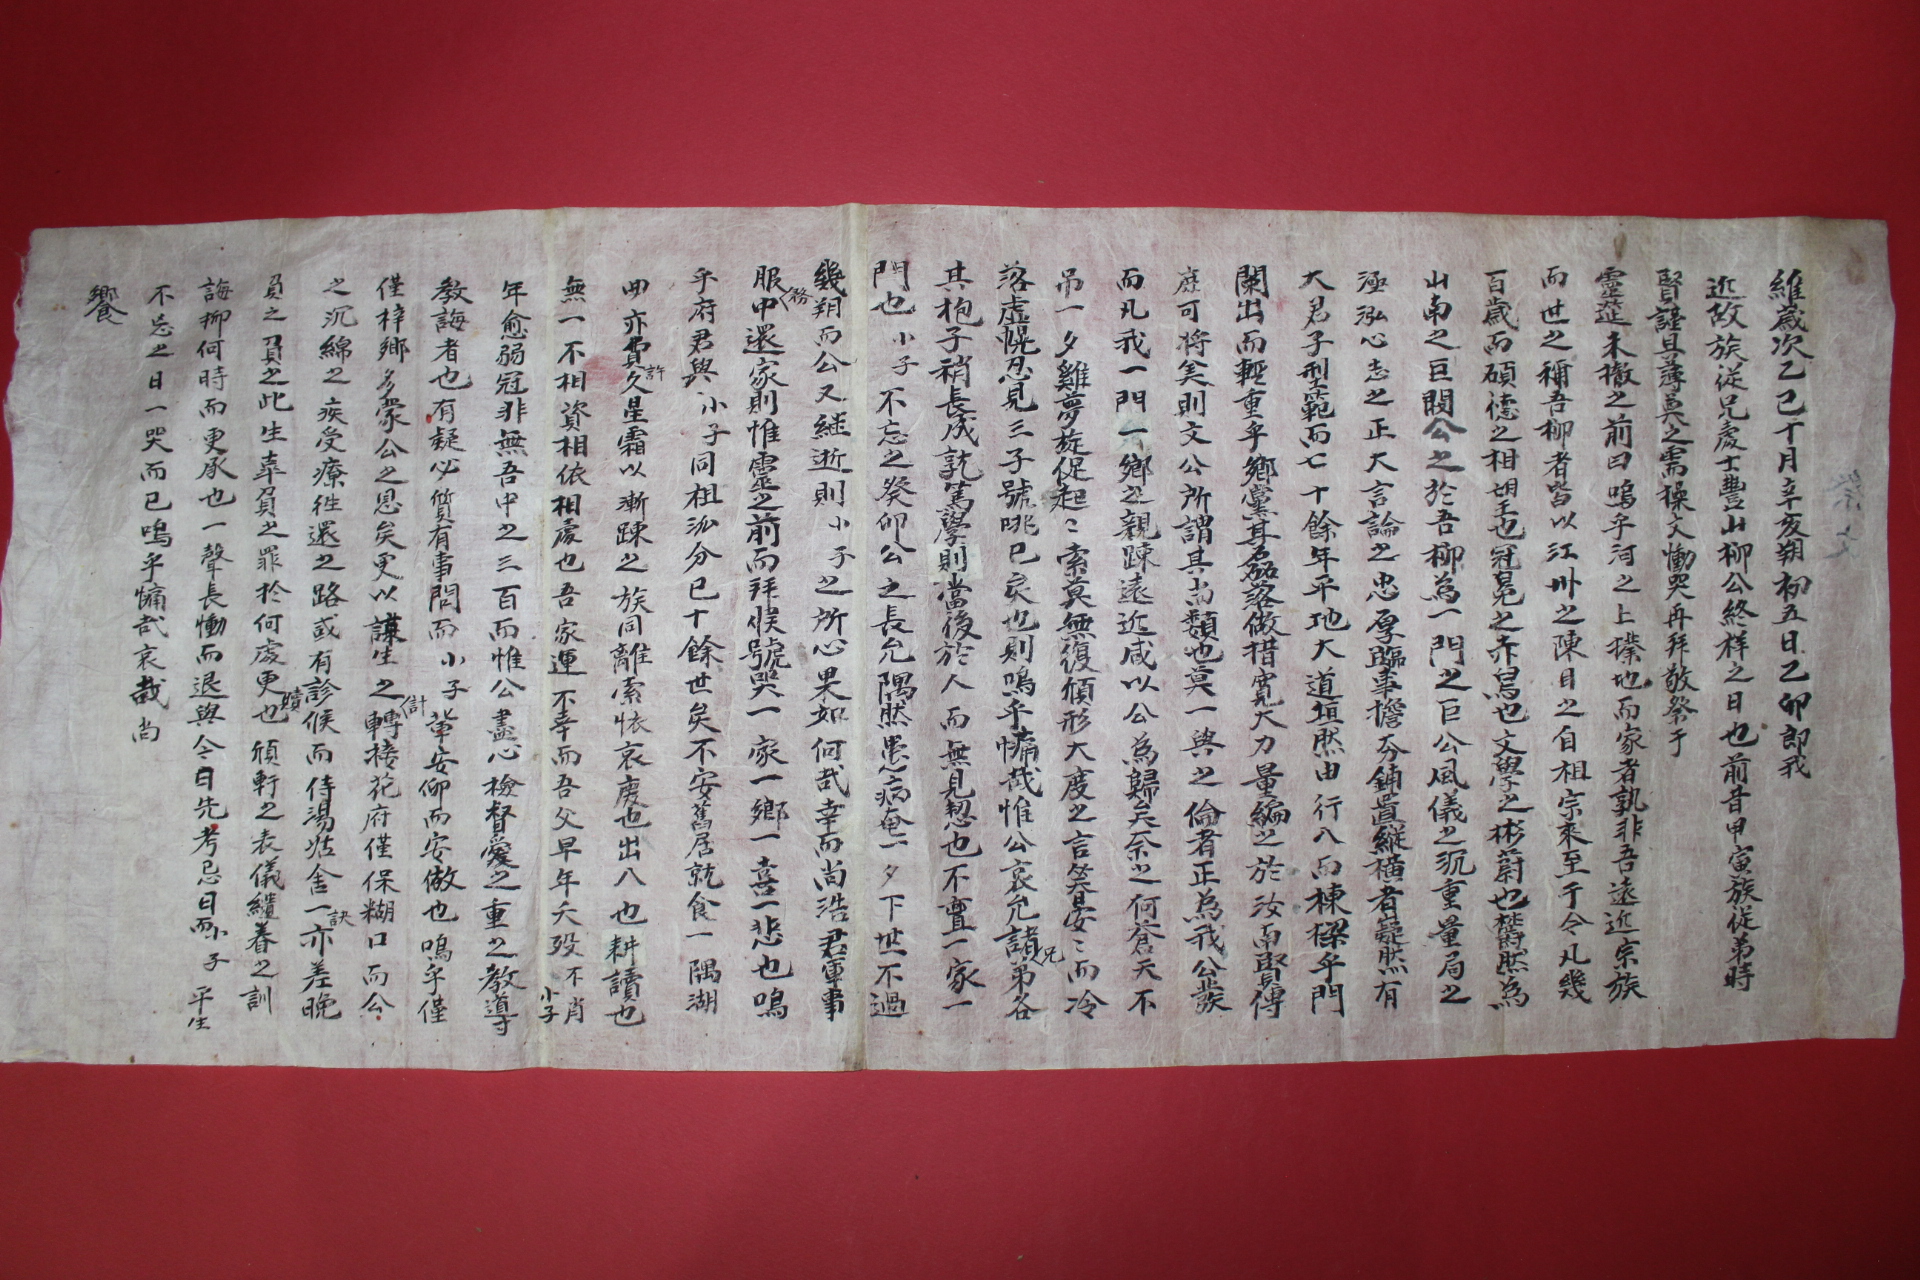 祭文
維歲次乙巳十月辛亥朔初五日乙卯郎我
近故族從兄處士豊山柳公終祥之日也前昔甲寅族從弟時
賢謹具薄奠之需操文慟哭再拜敬祭于
靈筵未撤之前曰嗚乎河之上撲地而家者孰非吾遠近宗族
而世之稱吾柳者皆以江卅之陳目之自祖宗來至于今凡幾
百歲而碩德之相望也冠冕之赤舃也文學之彬蔚也欝然為
山南之巨閥公之於吾柳為一門之巨公風儀之沉重量局之
泓心志之正大言論之忠厚臨事擔夯鋪置縱橫者嶷然有
大君子型範而七十餘年平地大道坦然由行入而棟樑乎門
闌出而輕重乎鄉黨其磊落做措寬大力量編之於汝南賢傳
庶可將美則文公所謂其尚類也莫一與之倫者正為我公發
而凡我一門一鄉之親踈遠近咸以公為歸矣奈之何蒼天不
吊一夕雞夢旋促起〻索莫無復頎形大度之言笑晏〻而冷
落虛幌忍見三子號咷已哀也則嗚乎慟哉惟公哀允諸兄弟各
其抱子稍長成就篤學則當後於人而無見愬也不亶一家一
門也小子不忘之癸卯公之長允隅然患病奄一夕下世不過
幾朔而公又継逝則小子之所心果如何哉幸而尚浩君軍事
服中務還家則惟靈之前而拜候號哭一家一鄉一喜一悲也嗚
乎府君與小子同祖汾分已十餘世矣不安舊居就食一隅湖
曲亦費許久星霜以漸踈之族同離索依哀慶也出入也耕讀也
無一不相資相依相處也吾家運不幸而吾父早年夭歿不肖小子
年愈弱冠非無吾中之三百而惟公盡心檢督愛之重之教導
教誨者也有疑必質有事問而小子輩安仰而安倣也嗚乎僅
僅梓鄉多蒙公之恩矣更以謀生之計轉接花府僅保糊口而公
之沉綿之疾受療徃還之路或有診候而侍湯括舍一訣亦差晚
負之負之此生辜負之罪於何處更贖也頎軒之表儀繾綣之訓
誨柳何時而更承也一聲長慟而退與今日先考忌日而小子平生
不忘之日一哭而已嗚乎慟哉哀哉尚
饗